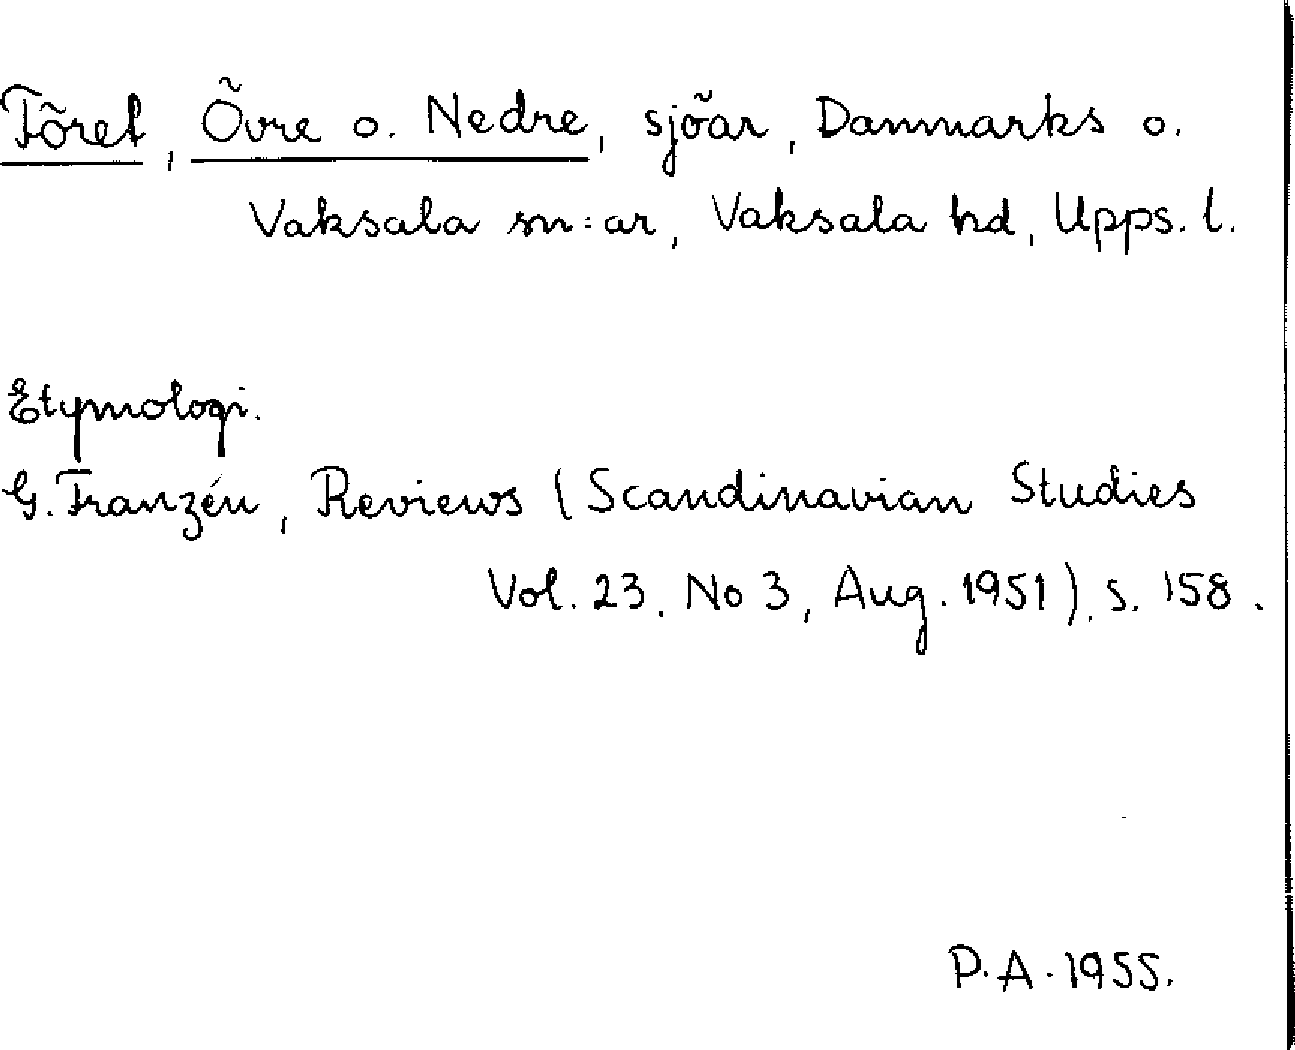 Föret, Övre o. Nedre, sjöar, Danmarks o.
Vaksala sn:ar, Vaksala hd, Upps. l.
Etymologi.
G. Franzén, Reviews (Scandinavian Studies
Vol. 23, No 3, Aug. 1951), s. 158.
P.A. 1955.